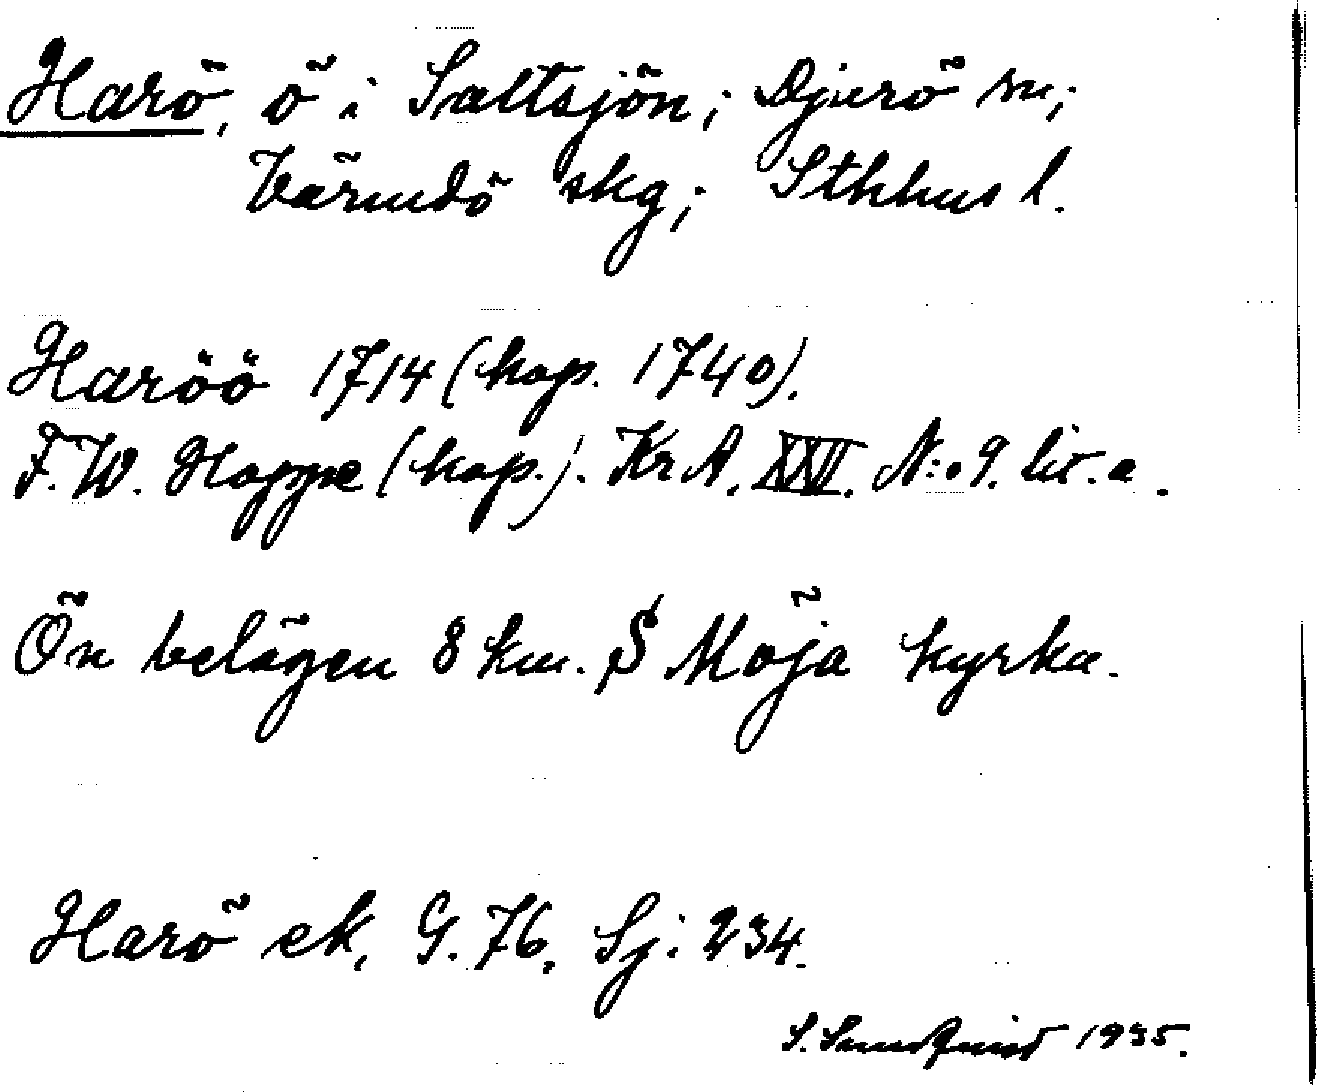 Harö, ö i Saltsjön; Djurö sn;
Värmdö skg; Sthlms l.
Haröö 1714 (kop. 1740).
F. W. Hoppe (kop.). Kr A. XXVI. N:o 9. lit. a.
Ön belägen 8 km. S Möja kyrka.
Harö ek, G. 76, Sj: 234.
S. Sundquist 1935.